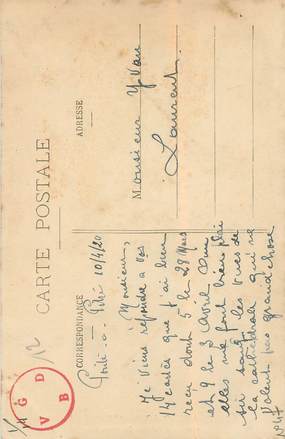 CARTE POSTALE
CORRESPONDANCE
ADRESSE
Pointe-a-Pitre 10/4/20
Monsieur,
Je viens répondre a vos
14 cartes que j'ai bien
recu dont 5 le 28 Mars
et 9 le 5 Avril
elles me font bien plai
sir sauf les vues de
la cathédrale qui ne
valent pas grand'chose
No 47
Monsieur Yvan
Laurent
G
V D
B